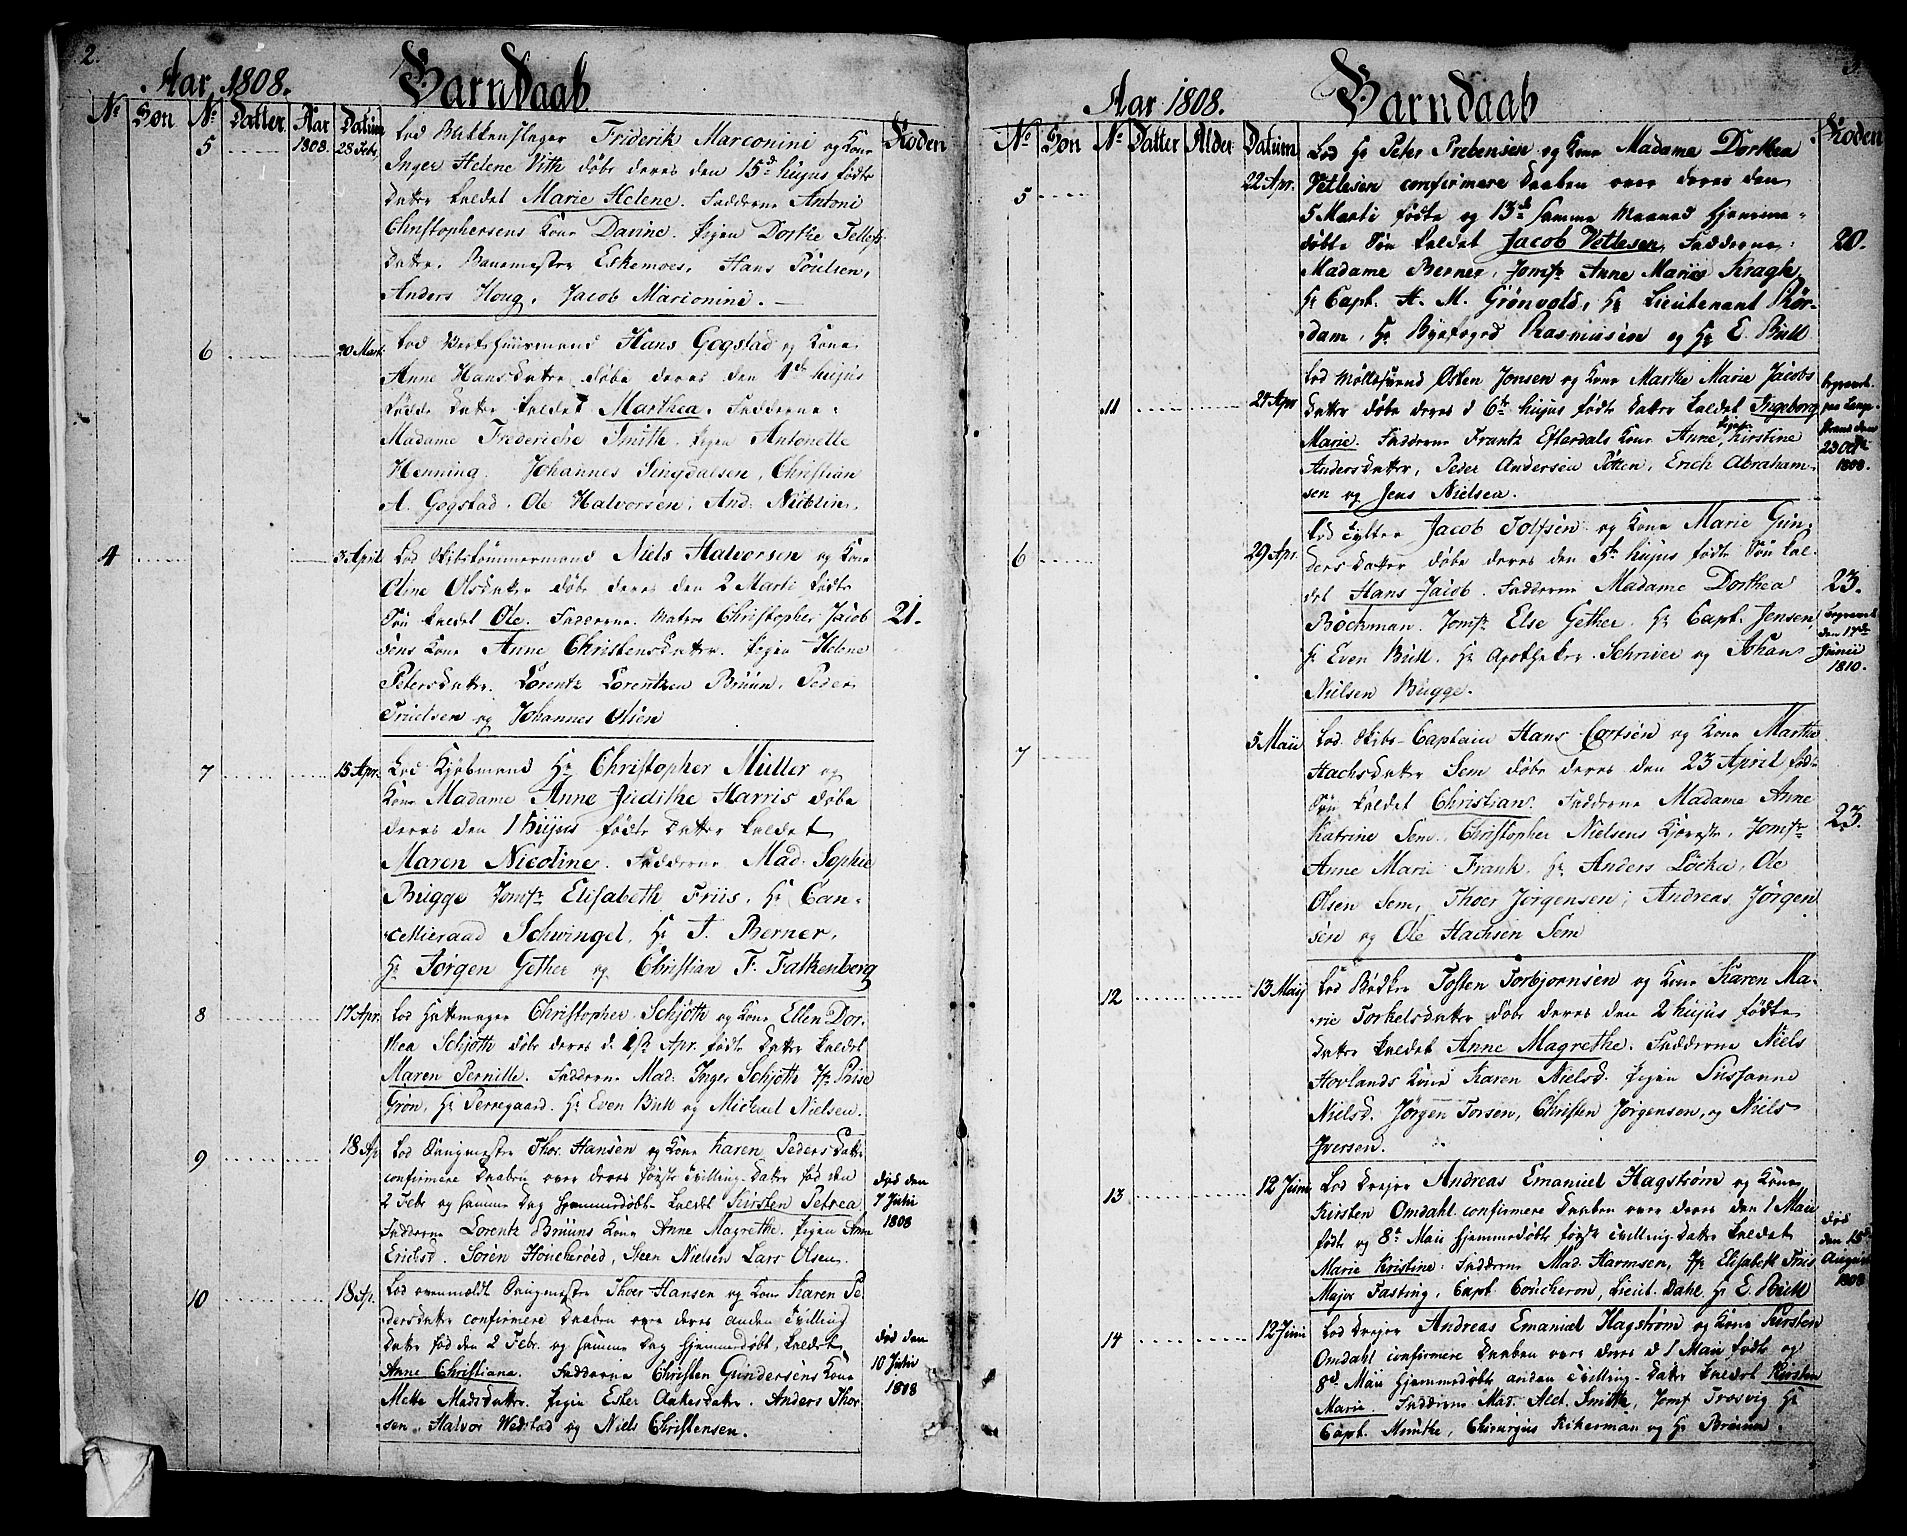 2.
Aar 1808. Barndaab
No Søn No Datter Aar Datum Koden
5 1808. 28 Febr. Lod Frid­erik Marconini og Kone
Inger Helene Vith døbe deres den 15d hujus fødte
Datter kaldet Marie Helene. Fadderne Antoni
Christophersens Kone Darine. Pigen Dorthe Tellefs
Datter. Eskemoes, Hans Poulsen,
Anders Houg, Jacob Marconini.
6 20 Mart. Lod Hans Gogstad og Kone
Anne Hansdatter døbe deres den 4de hujus
fødde Datter kaldet Marthea. Fadderne:
Madame Frederiche Smith. Pigen Antonette
Henning. Johannes Singdalsen, Christian
A. Gogstad. Ole Halvorsen, And. Nüblin.
4 3 April Lod Skibstømmermand Niels Halvorsen og Kone
Oline Olsdatter døbe deres den 2 Marti fødte
Søn kaldet Ole. Fadderne Christopher Jacob
sens Kone Anne Christensdatter. Pigen Helene 21.
Petersdatter. Lorentz Lorentzen Bruun. Peder
Truelsen og Johannes Olsen
7 15 Apr. Lod Kjøbmand Hr Christopher Müller og
Kone Madame Anne Judithe Harris døbe
deres den 1 Hujus fødte Datter kaldet
Maren Nicoline. Fadderne Mad. Sophie
Bugge Jomfr Elisabeth Friis. Hr Can-
cellieraad Schwingel. Hr J. Berner.
Hr Jørgen Gether og Christian F. Falkenberg
8 17 Apr. Lod Christopher Schjøth og Kone Ellen Dor-
thea Schjøth døbe deres d. Apr. født Datter kaldet
Maren Pernille. Fadderne Mad: Inger Schjøth Jfr
Grøn, Hr Perregaard. Hr Even Bull og Michael Nielsen.
9 18 Ap. Lod Thor Hansen og Kone Karen Pedersdatter
confirmere Daaben over deres første Tvilling-Datter fød den
2 Febr og samme Dag hjemmedøbte kaldet Kirsten Petrea
Fadderne Lorentz Bruuns Kone Anne Magrethe. Pigen Ane
Ericksd. Søren Houcherøed, Steen Nielsen Lars Olsen.
død den
7 Julii
1808
10 18 Ap. Lod ovenmeldte Thoer Hansen og Kone Karen Pe
dersdatter confirmere Daaben over deres anden Tvilling
Datter fød den 2 Febr. og samme Dag hjemmedøbt kaldet
Anne Christiana. Fadderne Christen Gundersens Kone
Mette Madsdatter. Pigen Ester Aakesdatter. Anders Thor
sen. Halvor Wedstad og Niels Christensen.
død den
10 Julii
1808
3
Aar 1808. Barndaab
No Søn No Datter Alder Datum Koden
5 22 Apr. Lod Hr Peter Prebensen og Kone Madame Dorthea
Vetlesen confirmere Daaben over deres den
5 Marti fødte og 13de samme Maaned hjemme-
døbte Søn kaldet Jacob Vetlesen. Fadderne: 20.
Madame Berner, Jomfr Anne Marie Kragh,
Hr Capt. A. M. Grønvold, Hr Lieutenant Rør-
dam, Hr Byefoged Rasmussen og Hr E. Bull
11 24 Apr Lod Møllesvend Østen Jonsen og Kone Marthe Marie Jacobs
Datter døbe deres d 6te hujus fødte Datter kaldet Ingeborg
Marie. Fadderne Frantz Efterdals Kone Anne, Pigen Kirstine
Andersdatter, Peder Andersen Potten, Erich Abraham-
sen og Jens Nielsen.
begravet
paa Lange-
strand den
23 Oct
1808.
6 29 Apr. Lod Jacob Tolfsen og Kone Marie Gun-
dersdatter døbe deres den 5te hujus fødte Søn kal-
det Hans Jacob. Fadderne Madame Dorthea 23.
Bøchman. Jomfr Else Gether. Hr Capt. Jensen,
Hr Even Bull. Hr Apotheker Schriver og Johan
Nielsen Bugge.
begravet
den 17de
Junii
1810.
7 5 Maii Lod Skibs-Captain Hans Carlsen og Kone Marthe
Hachsdatter Sem døbe deres den 23 April fødte
Søn kaldet Christian. Fadderne Madame Anne 23.
Katrine Sem. Christopher Nielsens Kjæreste, Jomfr
Anne Marie Frank. Hr Anders Locka, Ole
Olsen Sem, Thoer Jørgensen, Andreas Jørgen
sen og Ole Hachsen Sem
12 13 Maij Lod Bødker Tosten Torbjørnsen og Kone Karen Ma-
rie Torkelsdatter døbe deres den 2 hujus fødte
Datter kaldet Anne Magrethe. Fadderne Niels
Hovlands Kone Karen Nielsd. Pigen Sussanne
Nielsd. Jørgen Torsen, Christen Jørgensen, og Niels
Iversen.
13 12 Junii Lod Drejer Andreas Emanuel Hagstrøm og Kone
Kirsten Omdahl confirmere Daaben over deres den 1 Maii
fødte og 8de Maii hjemmedøbte første Tvilling-Datter kaldet
Marie Kristine: Fadderne Mad. Harmsen, Jfr Elisabeth Friis
Major Fasting, Capt Coucheron, Lieut. Dahl, Hr E. Bull
død
den 15de
August
1808
14 12 Juni Lod Drejer Andreas Emanuel Hagstrøm og Kone Kirsten
Omdahl confirmere Daaben over deres d 1 Maii fødte og
8d. Maii hjemmedøbte anden Tvilling-Datter kaldet Kirsten
Marie. Fadderne Mad. Alet. Smith, Jomf Træsvig Hr
Capt. Munthe, Chirurgus Kikerman og Hr Bruun.